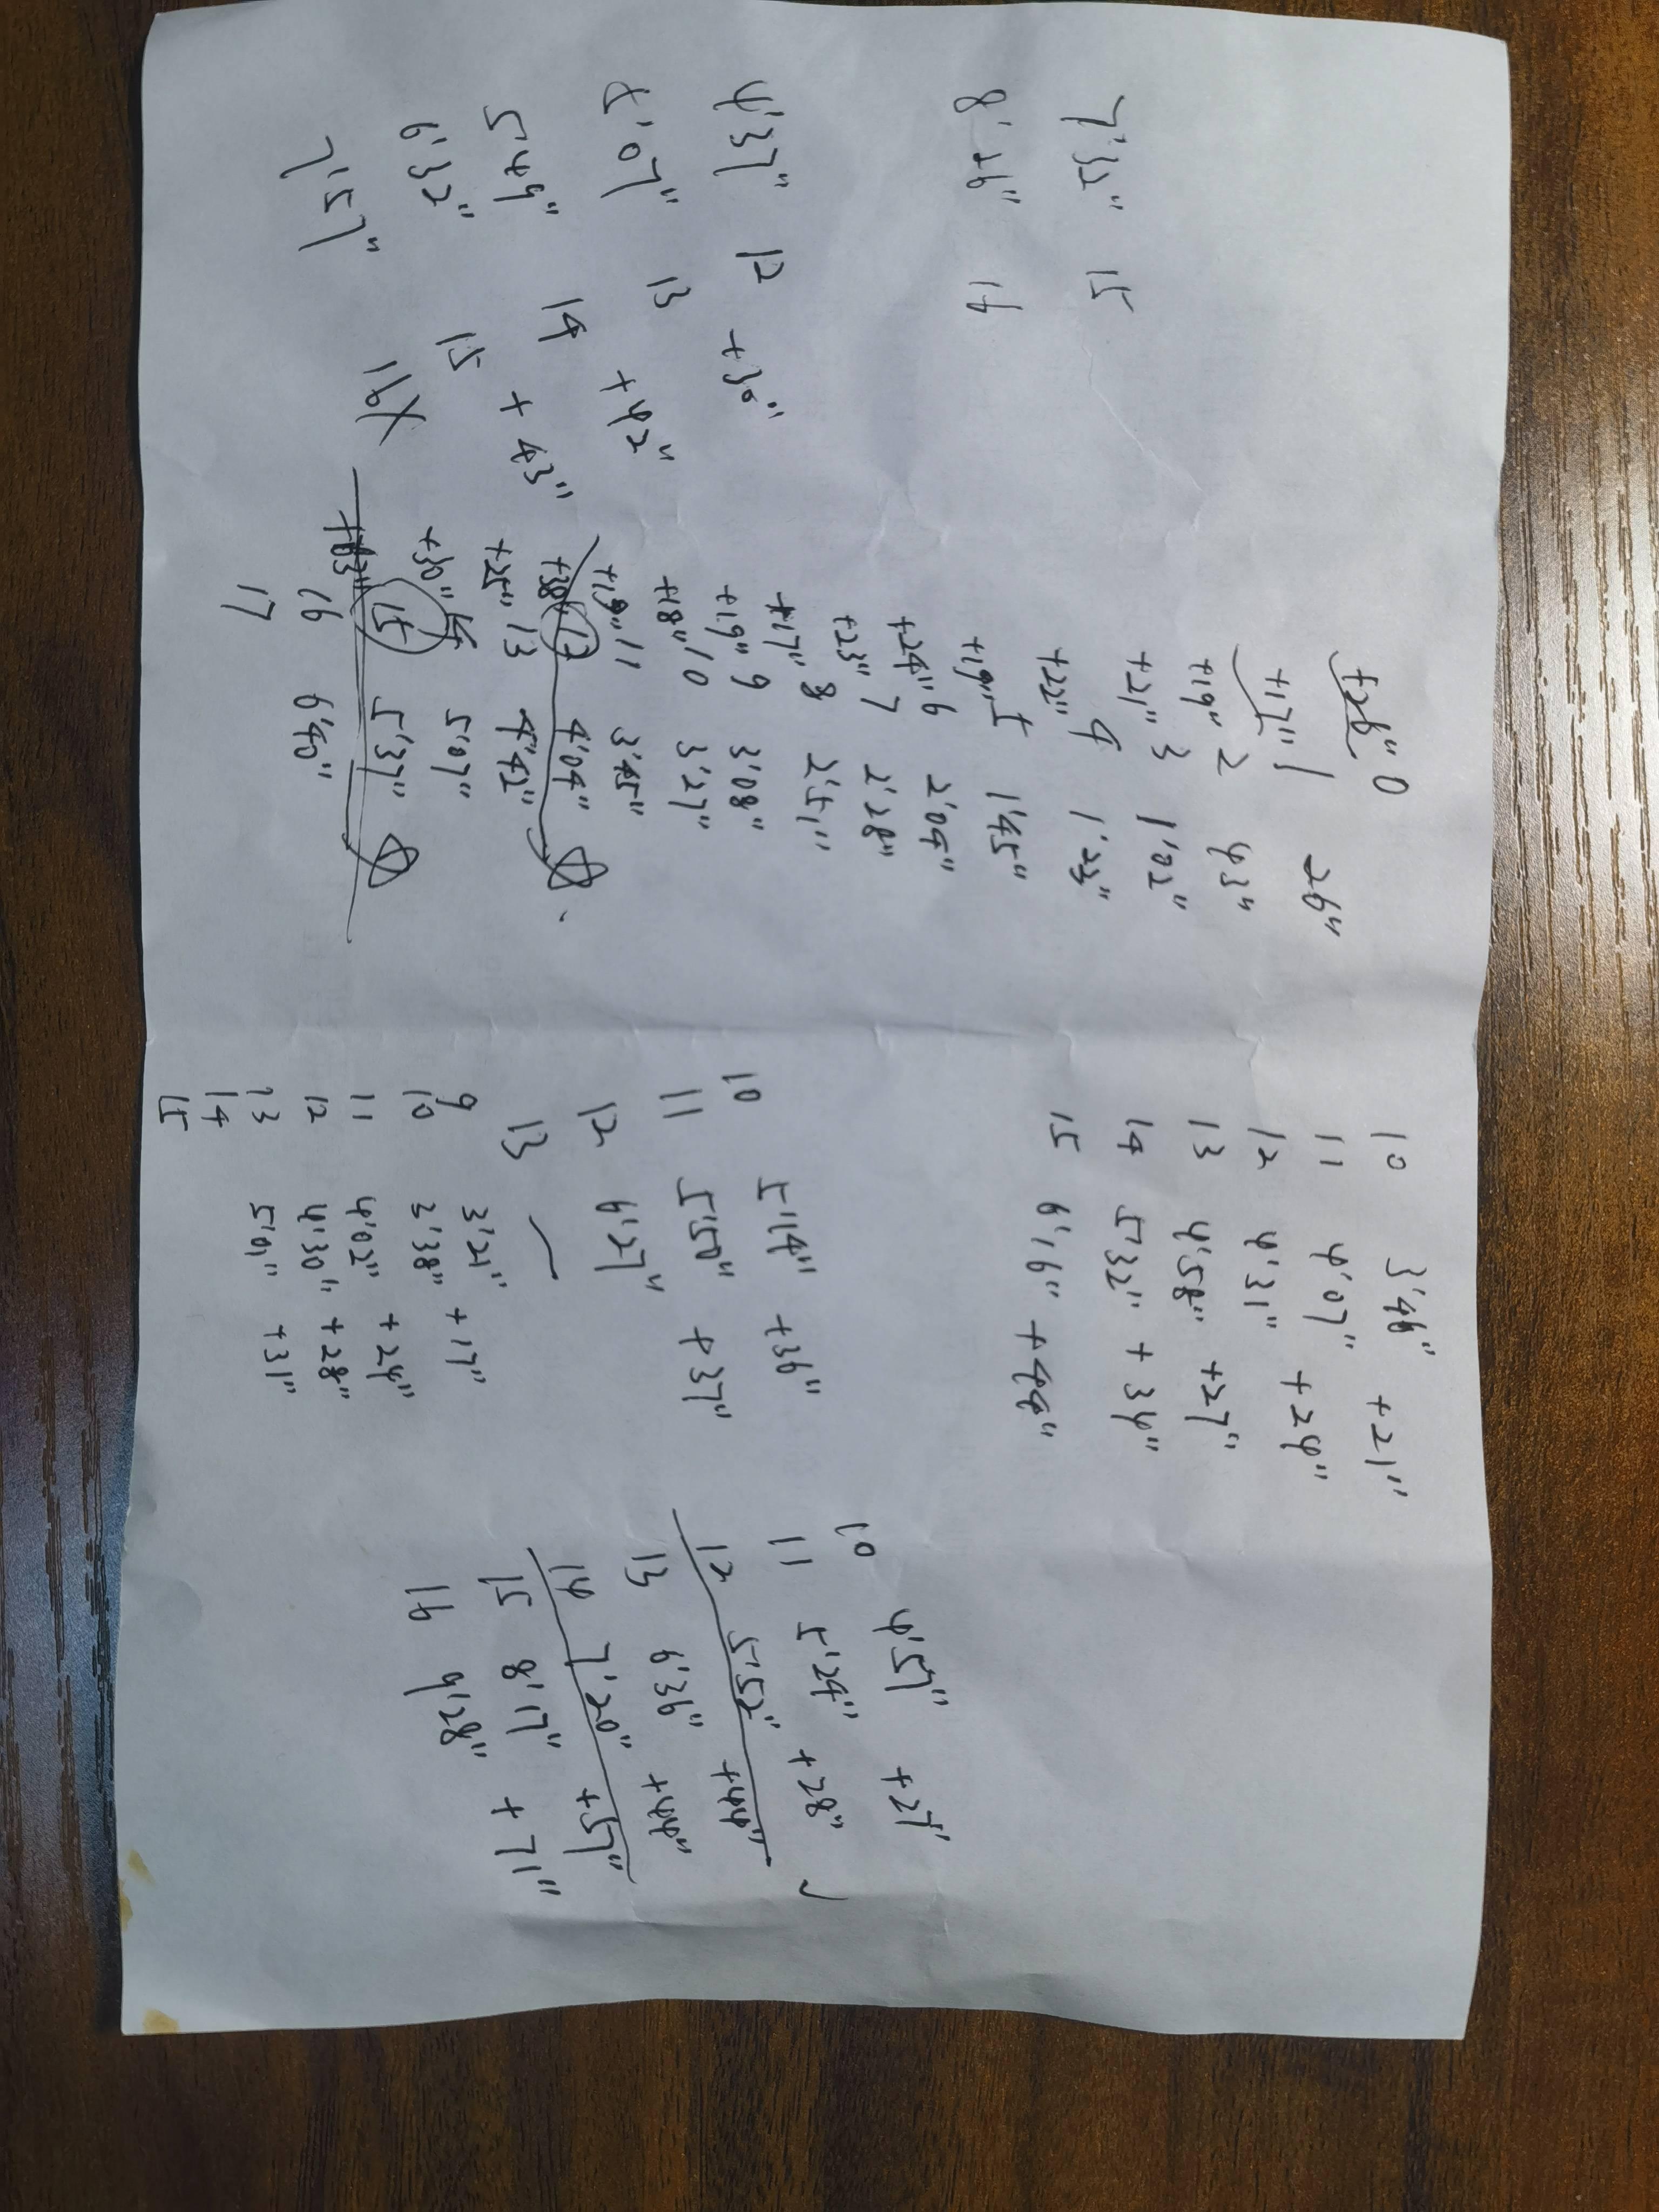 7'32" 15
8'26" 16
4'37" 12 +30"
5'07" 13 +42"
5'49" 14 +43"
6'32" 15
7'57" 16
+26" 0
+17" 1 26"
+19" 2 43"
+21" 3 1'02"
+22" 4 1'23"
+19" 5 1'45"
+24" 6 2'04"
+23" 7 2'28"
+17" 8 2'51"
+19" 9 3'08"
+18" 10 3'27"
+19" 11 3'45"
+38" 12 4'04"
+25" 13 4'42"
+30" 14 5'07"
+63" 15 5'37"
16 6'40"
17
10 3'46" +21"
11 4'07" +24"
12 4'31"
13 4'58" +27"
14 5'32" +34"
15 6'16" +44"
10 5'14" +36"
11 5'50" +37"
12 6'27"
13
9 3'21" +17"
10 3'38"
11 4'02" +24"
12 4'30" +28"
13 5'01" +31"
14
15
10 4'57" +27"
11 5'24" +28"
12 5'52" +44"
13 6'36" +44"
14 7'20" +57"
15 8'17" +71"
16 9'28"